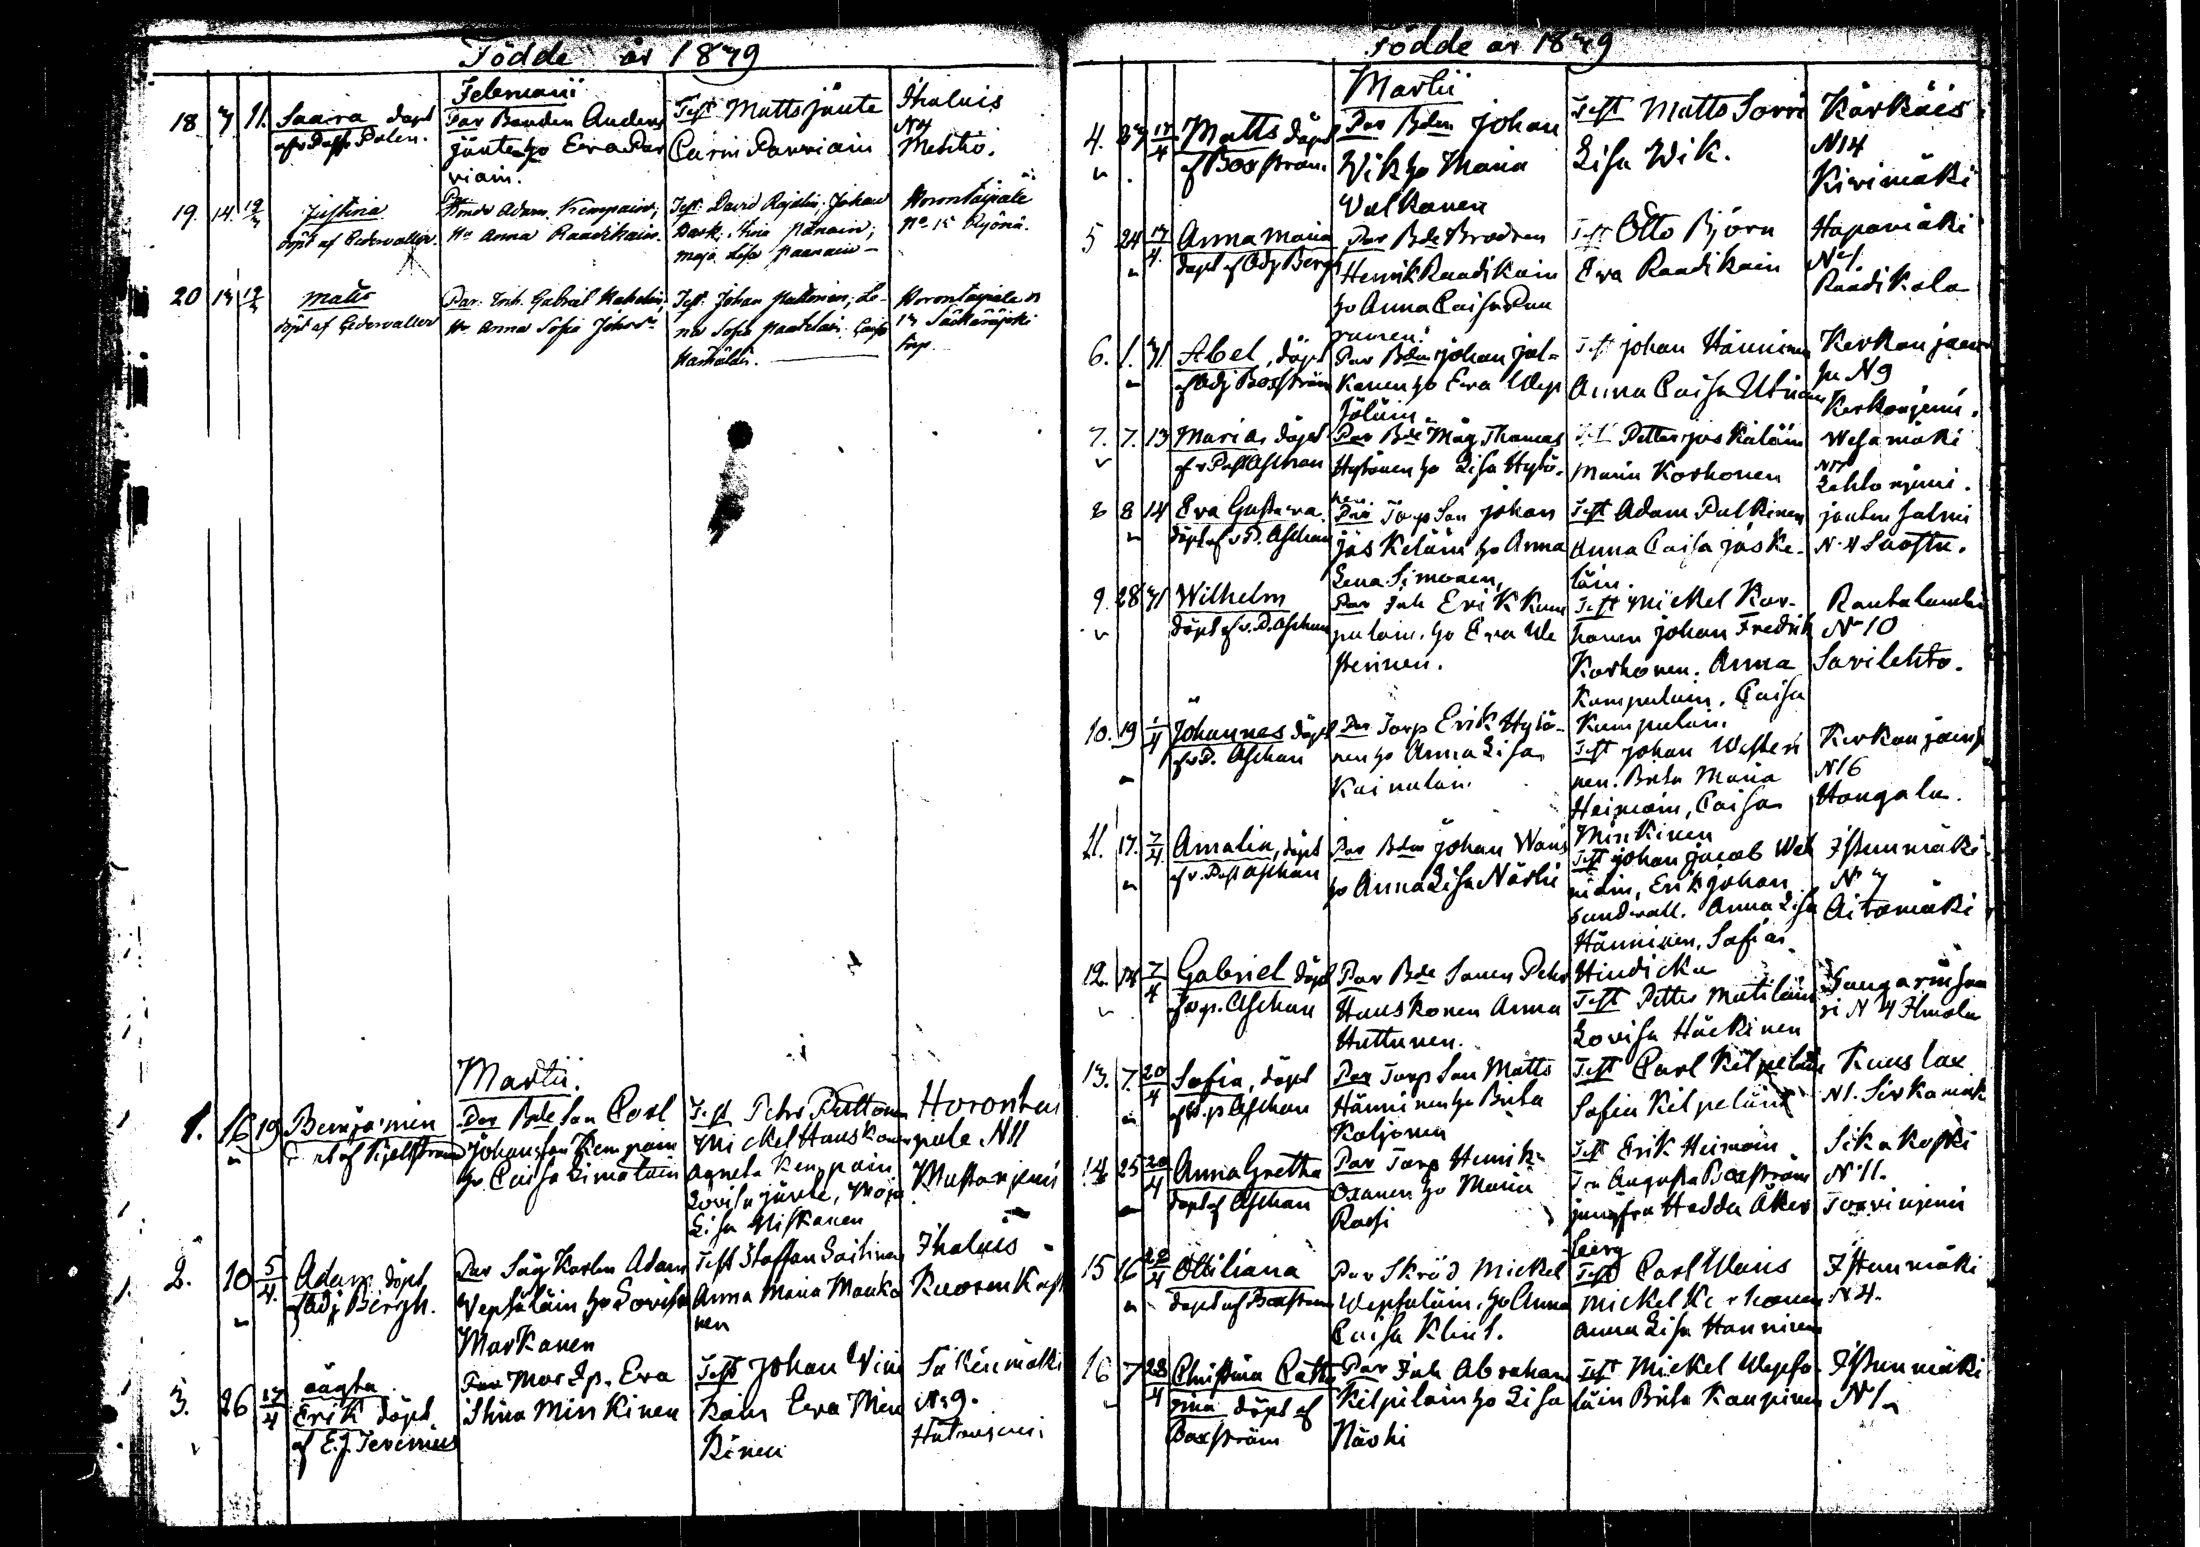 Födde år 1849
Februarii
18 7 11. Saara döpt
Par Bonden Anders
Jänte ho Eva Par
viain.
Test Matts Jänte
Carin Parviain
Ihalais
N 7
Mehto.
19. 14. Justina
döpt af Cedervaller.
Adam Kempain;
Hu Anna Raadikain.
Test: David Rajalin, Johan
Stina Pänäin;
Maja Lisa Paanain
Horontaipale
No 15 Kyönä.
20 Matts
döpt af Cedervaller
Par: Inh. Gabriel
Hu Anna Sofia
Test: Johan Puttonen, Le-
na Sofia
Horontaipale
Martii.
1. 16 19 Benjamin
af Kjellstrand
Par Bde Son Carl
Johansson Kempain
ho Caisa Limatain
Test Petr Puttonen
Mickel Hauskonen
Agneta Kempain
Lovisa Jänte, Maja
Lisa Niskanen
Horontai
pale N 11
Mustanjemi
2. 10 5/4. Adam döpt
af Adj Bergh.
Par Adam
Wepsäläin ho Lovisa
Markanen
Test Staffan Laitinen
Anna Maria Manko
nen
Ihalais
3. 26 17/4 oägta
Erik döpt
af E.J. Teverius
Par Mor Ip. Eva
Stina Minkinen
Test Johan
Eva Min
kinen
Säkinmäki
N 9.
Födde år 1849
Martii
4. 27 17/4 Matts döpt
af Boxström.
Par Bdn Johan
Wik ho Maria
Valkonen
Test Matts Sorri
Lisa Wik.
Kärkäis
N 14
Kivimäki
5 24 17/4. Anna Maria
döpt af Adj Bergh
Par Bde Brodren
Henrik Raadikain
ho Anna Caisa Pau
nunen.
Test Otto Björn
Eva Raadikain
Hapamäki
N 1.
Raadikala
6. 1. 31 Abel, döpt
af Adj Boxström
Par Bdn Johan Jal-
kanen ho Eva Wep
säläin.
Test Johan Hänninen
Anna Caisa Utrian
Kerkonjoen
su N 9
Kerkonjemi.
7. 7. 13 Maria, döpt
af v Past Aschan
Par Bde Måg Thomas
Hytönen ho Lisa Hytö-
nen.
Test Petter Jäskäläin
Maria Korhonen
Wesamäki
Lehtonjemi.
8 8 14 Eva Gustava.
döpt af v P. Aschan
Par Torp Son Johan
Jäskeläin ho Anna
Lena Simonen,
Test Adam Pulkinen
Anna Caisa Jäske-
läin.
Joutsn Salmi
N. 4 Suostu.
9. 28 31 Wilhelm
döpt af v. P. Aschan
Par Inh Erik Kum
pulain. ho Eva We
sterinen.
Test Mickel Kor-
honen Johan Fredrik
Korhonen. Anna
Kumpulain, Caisa
Kumpulain.
Rautalambi
N 10
Savilehto.
10. 19 1/4 Johannes döpt
af v P. Aschan
Par Torp Erik Hytö-
nen ho Anna Lisa
Kainulain.
Test Johan Westeri
nen. Brita Maria
Heimoin, Caisa
Minkinen
Kerkonjoens
N 16
Hangala.
11. 17. 7/4. Amalia, döpt
af v. Past Aschan
Par Bdn Johan Wäis
ho Anna Lisa Närhi
Test Johan Jacob
Erik Johan
Sundvall. Anna Lisa
Hänninen, Sofia
Hindicka
Istunmäki.
N 7
Aitomäki
12. 14 7/4 Gabriel döpt
af v p. Aschan
Par Bde Sonen Petr
Hauskonen Anna
Huttunen.
Test Petter Matiläin
Lovisa Häckinen
Hangarinsaa
ri N 4 Ilmola
13. 7. 20/4 Sofia, döpt
af v. p Aschan
Par Torp Son Matts
Hänninen ho Brita
Kaljonen
Test Carl Kilpeläin
Sofia Kilpeläin
Kuuslax
N 1. Sirkamäk
14 25 20/4 Anna Gretha
döpt af Aschan
Par Torp Henrik
Oxanen ho Maria
Raesi
Test Erik Heimoin
Fru Augusta Boxström
jungfru Hedda Åker
berg
Sikakoski
N 11.
Torvinjemi
15 16 22/4 Ottiliana
döpt af Boxström
Par Skräd Mickel
Wepsäläin, ho Anna
Caisa Klint.
Test Carl Wäis
Mickel
Anna Lisa Hänninen
Istunmäki
N 4.
16 7 28/4 Christina Catha
rina döpt af
Boxström
Par Inh Abraham
Kilpiläin ho Lisa
Närhi
Test Mickel Wepsä-
läin Brita Kaupinen
Istunmäki
N 1.